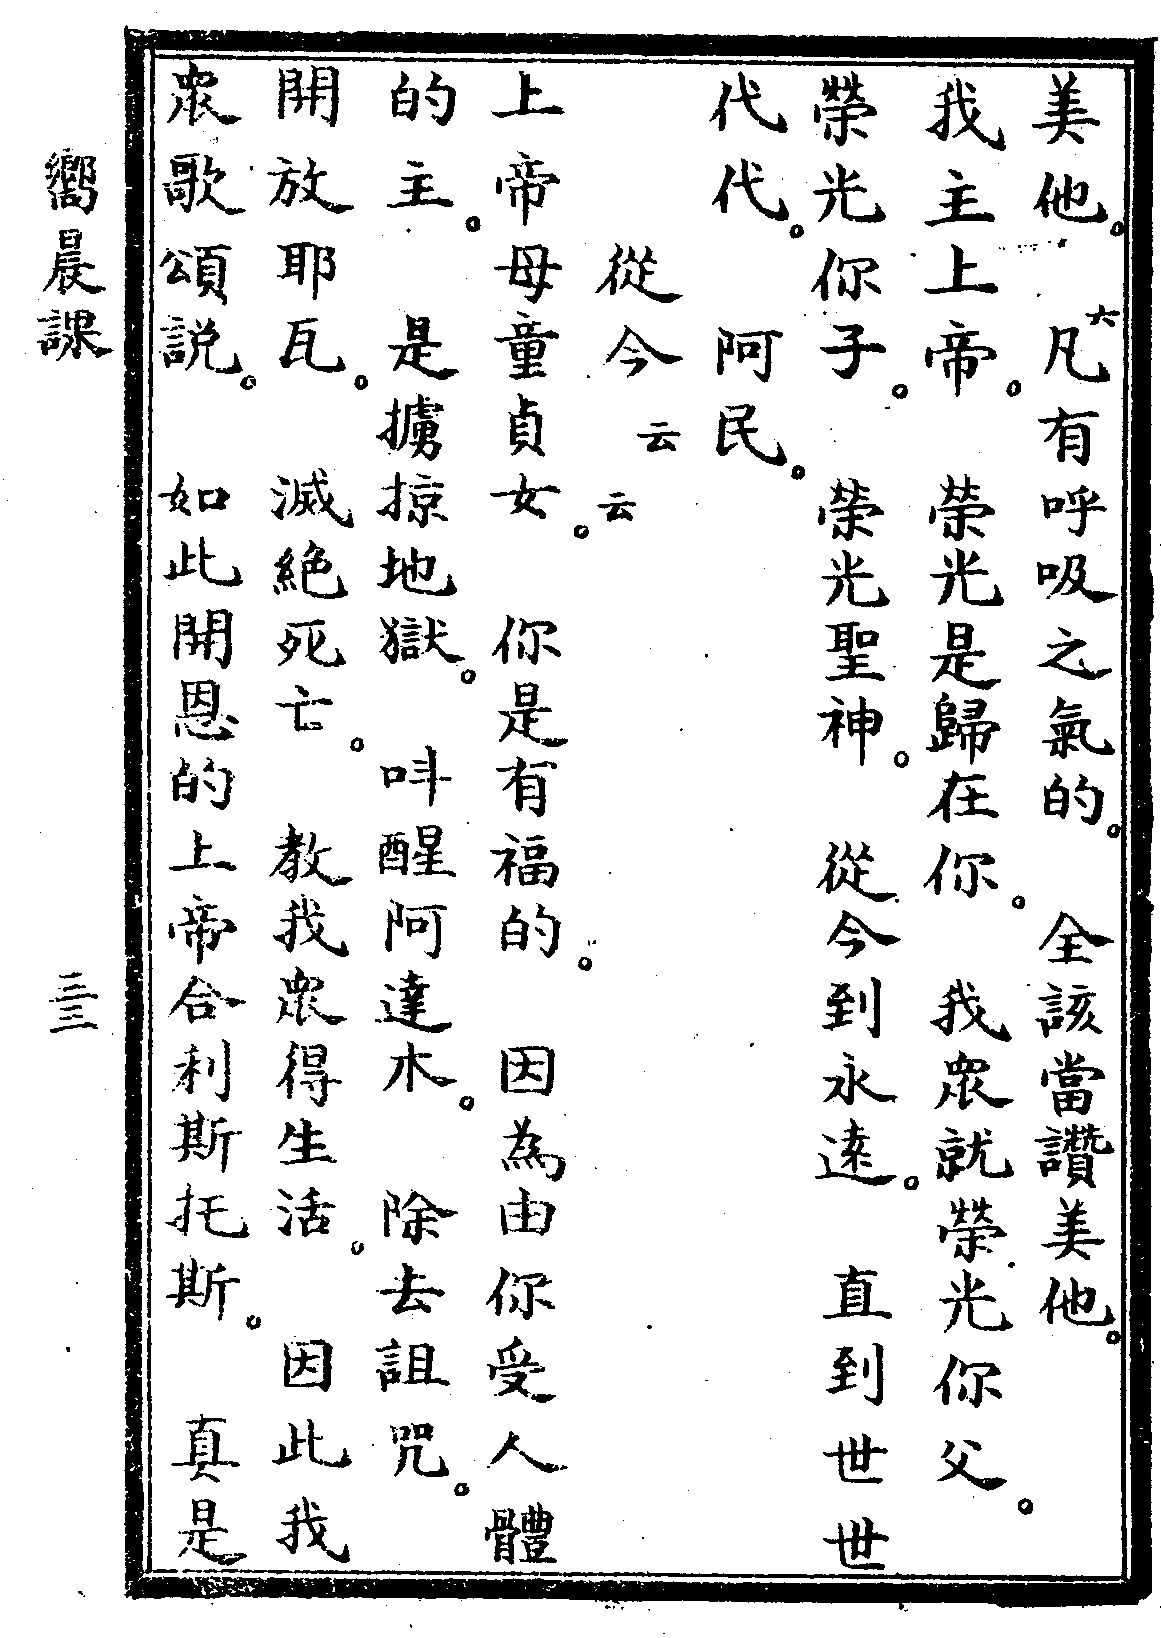 美他。　六凡有呼吸之氣的。　全該當讚美他。
我主上帝。　榮光是歸在你。　我衆就榮光你父。
榮光你子。　榮光聖神。　從今到永遠。　直到世世
代代。　阿民。
從今云云
上帝母童貞女。　你是有福的。　因為由你受人體
的主。　是擄掠地獄。　呌醒阿達木。　除去詛咒。
開放耶瓦。　滅絕死亡。　教我衆得生活。　因此我
衆歌頌説。　如此開恩的上帝合利斯托斯。　真是
嚮晨課
三三